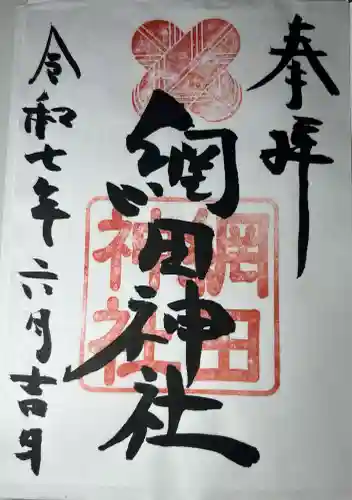 奉拝
網田神社
網田
神社
令和七年六月吉日